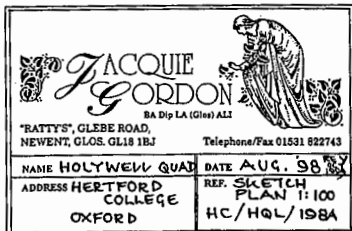 JACQUIE
GORDON
BA Dip LA (Glos) ALI
"RATTY'S", GLEBE ROAD,
NEWENT, GLOS. GL18 1BJ
Telephone/Fax 01531 822743
NAME HOLYWELL QUAD
DATE AUG. '98
ADDRESS HERTFORD
COLLEGE
OXFORD
REF. SKETCH
PLAN 1:100
HC/HQL/198A